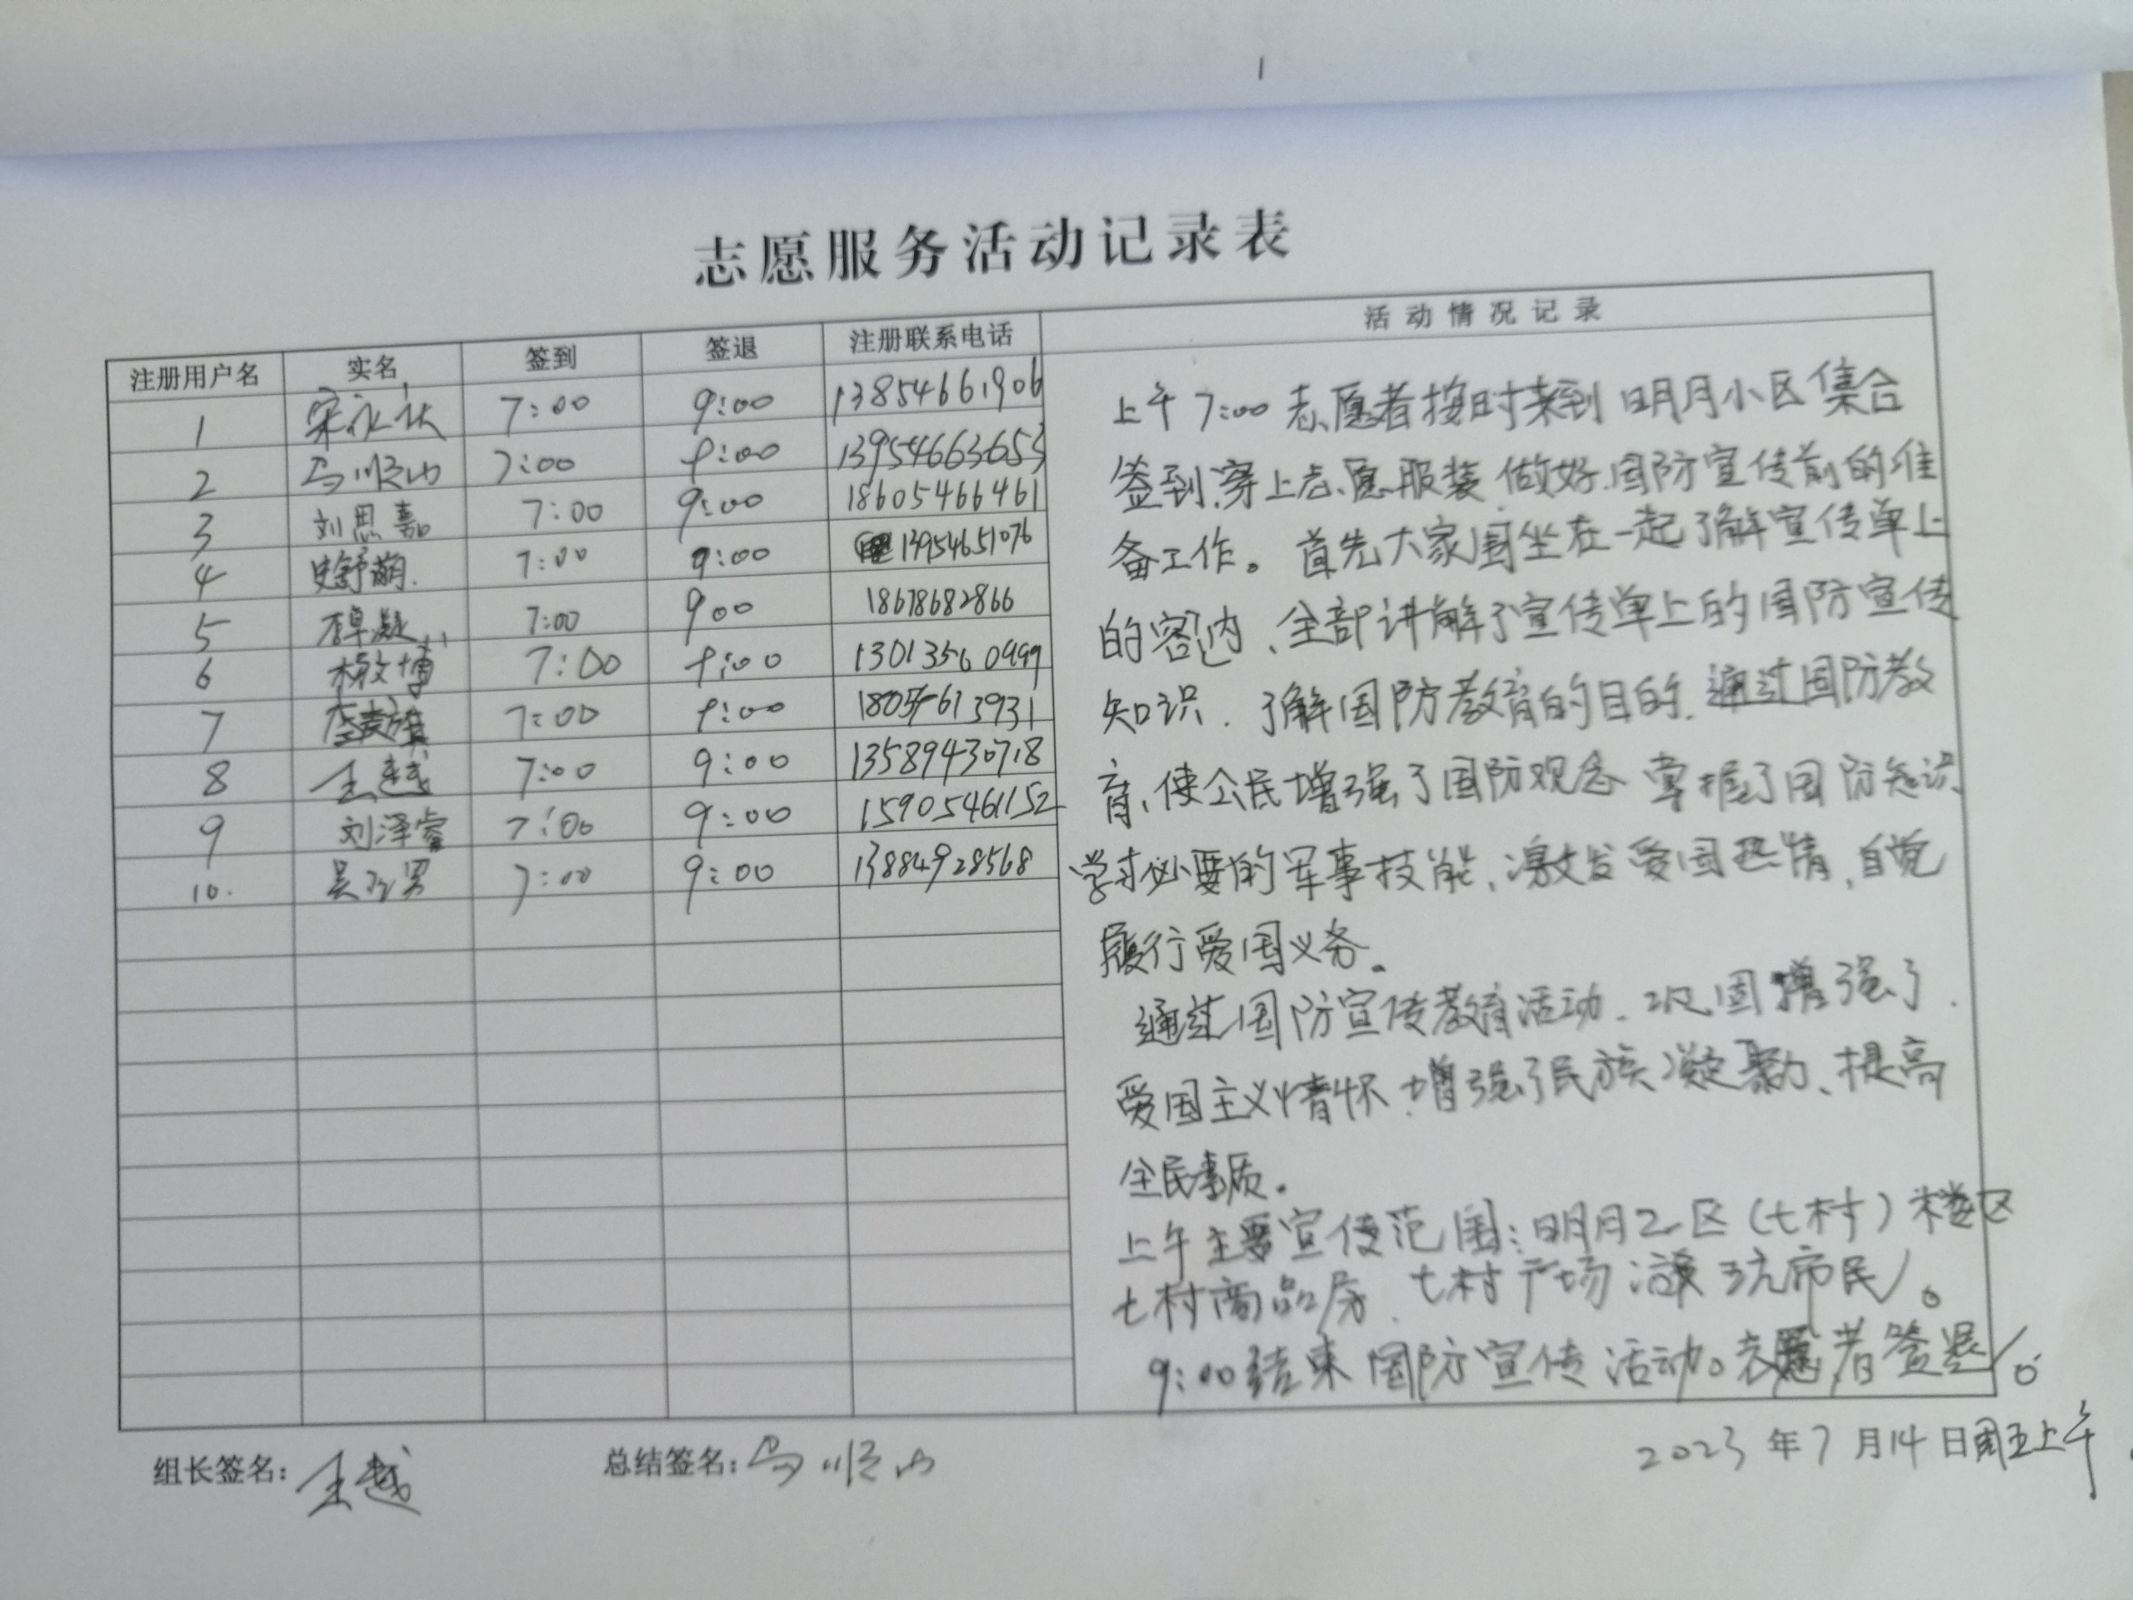 志愿服务活动记录表
注册用户名 实名 签到 签退 注册联系电话 活动情况记录
1 7:00 9:00 13854661906
2 马顺山 7:00 9:00 13954663653
3 刘思嘉 7:00 9:00 18605466461
4 史舒萌 7:00 9:00 13954651076
5 7:00 900 18678682866
6 7:00 9:00 13013560999
7 7:00 9:00
8 王越 7:00 9:00 13589430718
9 刘泽睿 7:00 9:00 15905461152
10. 7:00 9:00 13884928568
上午7:00志愿者按时来到明月小区集合
签到、穿上志愿服装 做好国防宣传前的准
备工作。首先大家围坐在一起了解宣传单上
的容内、全部讲解了宣传单上的国防宣传
知识.了解国防教育的目的.通过国防教
育、使公民增强了国防观念 掌握了国防知识
学习必要的军事技能、激发爱国热情、自觉
履行爱国义务。
通过国防宣传教育活动.巩固增强了.
爱国主义情怀.增强了民族凝聚力、提高
全民素质。
上午主要宣传范围:明月二区(七村)楼区
七村商品房.七村广场 市民。
9:00结束国防宣传活动。志愿者签退。
组长签名:王越 总结签名:马顺山 2023年7月14日周五上午.